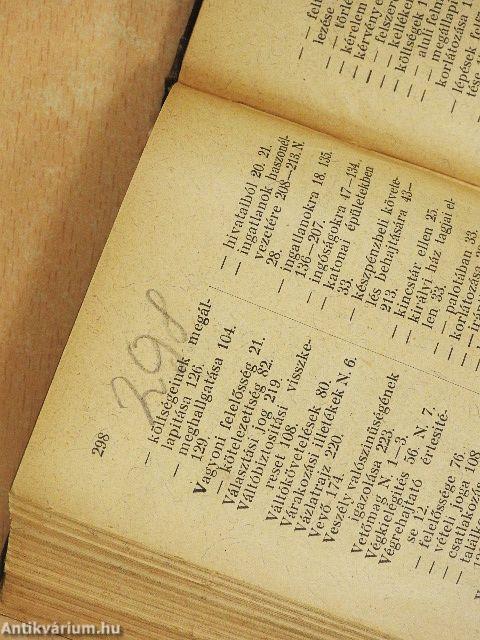 298
298
— költségeinek megál-
lapitása 126.
— meghallgatása 104.
129.
Vagyoni felelősség 21.
— kötelezettség 82.
Választási jog 219.
Váltóbiztositási visszke-
reset 108.
Váltókövetelések 80.
Várakozási illetékek N. 6.
Vázlatrajz 220.
Vevő 174.
Veszély valószinüségének
igazolása 225.
Vetőmag N. 1—3.
Végkielégítés 56. N. 7.
Végrehajtató értesité-
se 12.
— felelőssége 76.
— vételi joga 108
— csatlakozás
— találko
— hivatalból 20. 21.
— ingatlanok haszonél-
vezetére 208—213. N.
28.
— ingatlanokra 18. 135.
136—207.
— ingóságokra 47—134.
— katonai épületekben
33.
— készpénzbeli követe-
lés behajtására 43—
213.
— kincstár ellen 25.
— királyi ház tagjai el-
len 33.
— palotában 33.
— korlátozása
— irán
— felt
lezése
— törlé
— kérelem
— kérvénye
— felszere
— kelléke
— költségek 1
— aluli feln
— megállapi
— korlátozása 1
— lépések fel
tése
Antikvárium.hu